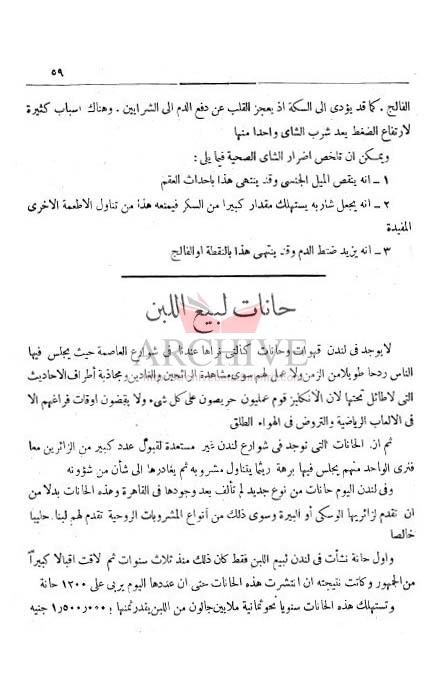 ٥٩
الفالج . كما قد يؤدى الى السكتة اذ يعجز القلب عن دفع الدم الى الشرايين . وهناك اسباب كثيرة
لارتفاع الضغط يعد شرب الشاى واحدا منها
ويمكن ان تلخص اضرار الشاى الصحية فيما يلى :
١ ـ انه ينقص الميل الجنسى وقد ينتهى هذا باحداث العقم
٢ ـ انه يجعل شاربه يستهلك مقدار كبيرا من السكر فيمنعه هذا من تناول الاطعمة الاخرى
المفيدة
٣ ـ انه يزيد ضغط الدم وقد ينتهى هذا بالنقطة او الفالج
حانات لبيع اللبن
ARCHIVE
لا يوجد فى لندن قهوات وحانات كالتى نراها عندنا فى شوارع العاصمة حيث يجلس فيها
الناس ردحا طويلا من الزمن ولا عمل لهم سوى مشاهدة الرائحين والغادين ومجاذبة أطراف الاحاديث
التى لا طائل تحتها لان الانكليز قوم عمليون حريصون على كل شىء ولا يقضون اوقات فراغهم الا
فى الالعاب الرياضية والتروض فى الهواء الطلق
ثم ان الحانات التى توجد فى شوارع لندن غير مستعدة لقبول عدد كبير من الزائرين معا
فترى الواحد منهم يجلس فيها برهة ريثما يتناول مشروبه ثم يغادرها الى شأن من شؤونه
وفى لندن اليوم حانات من نوع جديد لم تألف بعد وجودها فى القاهرة وهذه الحانات بدلا من
ان تقدم لزائريها الوسكى أو البيرة وسوى ذلك من أنواع المشروبات الروحية تقدم لهم لبنا حليبا
خالصا
واول حانة نشأت فى لندن لبيع اللبن فقط كان ذلك منذ ثلاث سنوات ثم لاقت اقبالا كبيراً
من الجمهور وكانت نتيجته ان انتشرت هذه الحانات حتى ان عددها اليوم يربى على ١٢٠٠ حانة
وتستهلك هذه الحانات سنويا نحو ثمانية ملايين جالون من اللبن يقدر ثمنها بـ ١٫٥٠٠٫٠٠٠ جنيه